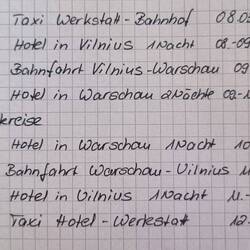 Taxi Werkstatt-Bahnhof 08.09
Hotel in Vilnius 1 Nacht 08.-09
Bahnfahrt Vilnius-Warschau 09
Hotel in Warschau 2 Nächte 09.-1
kreise
Hotel in Warschau 1 Nacht 10
Bahnfahrt Warschau-Vilnius 11
Hotel in Vilnius 1 Nacht 11.-
Taxi Hotel-Werkstatt 12.